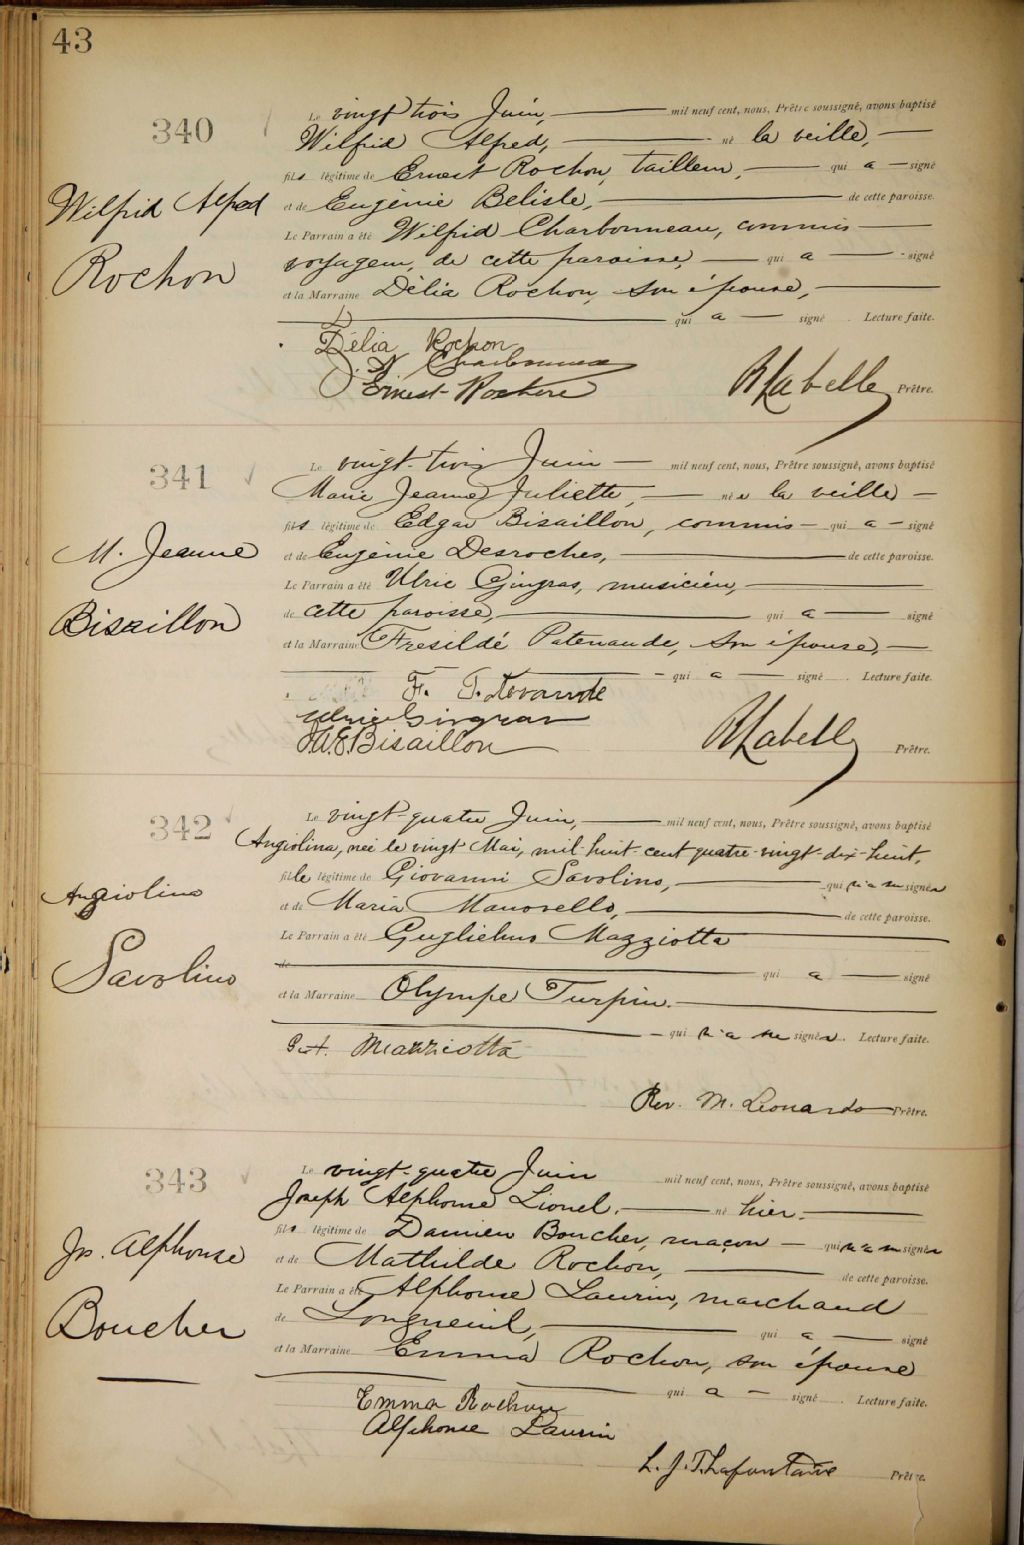 43
340
Wilfrid Alfred
Rochon
Le vingt trois Juin, mil neuf cent, nous, Prêtre soussigné, avons baptisé
Wilfrid Alfred, né la veille,
fils légitime de Ernest Rochon, tailleur, qui a signé
et de Eugénie Belisle, de cette paroisse.
Le Parrain a été Wilfrid Charbonneau, commis
voyageur, de cette paroisse, qui a signé
et la Marraine Délia Rochon, son épouse,
qui a signé. Lecture faite.
Délia Rochon
Charbonneau
Ernest Rochon
Labelle Prêtre.
341
M. Jeanne
Bisaillon
Le vingt-trois Juin mil neuf cent, nous, Prêtre soussigné, avons baptisé
Marie Jeanne Juliette, née la veille
légitime de Edgar Bisaillon, commis qui a signé
et de Eugénie Desroches, de cette paroisse.
Le Parrain a été Ulric Gingras, musicien,
de cette paroisse, qui a signé
et la Marraine Fresildé Patenaude, son épouse,
qui a signé. Lecture faite.
Ulric Gingras
Bisaillon
Labelle Prêtre.
342
Angiolina
Savolino
Le vingt-quatre Juin, mil neuf cent, nous, Prêtre soussigné, avons baptisé
Angiolina, née le vingt Mai, mil-huit-cent quatre-vingt-dix-huit,
fille légitime de Giovanni Savolino, qui n'a su signer
et de Maria Manorello, de cette paroisse.
Le Parrain a été Guglielmo Mazziotta
de qui a signé
et la Marraine Olympe Turpin.
qui n'a su signer. Lecture faite.
Mazziotta
Rev. M. Leonardo Prêtre.
343
Js. Alphonse
Boucher
Le vingt-quatre Juin mil neuf cent, nous, Prêtre soussigné, avons baptisé
Joseph Alphonse Lionel, né hier.
fils légitime de Damien Boucher, maçon qui n'a su signer
et de Mathilde Rochon, de cette paroisse.
Le Parrain a été Alphonse Laurin, marchand
de Longueuil, qui a signé
et la Marraine Emma Rochon, son épouse
qui a signé. Lecture faite.
Emma Rochon
Alphonse Laurin
L. J. T. Lafontaine Prêtre.